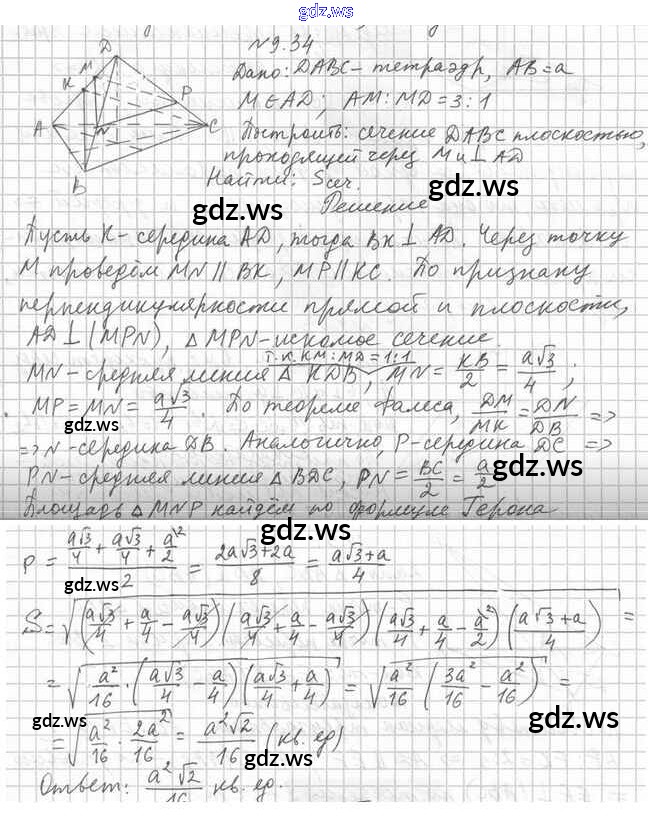 gdz.ws
№9.34
Дано: DABC - тетраэдр, AB=a
M∈AD; AM:MD=3:1
Построить: сечение DABC плоскостью,
проходящей через M и ⊥ AD
Найти: Sсеч.
gdz.ws
gdz.ws
Решение
Пусть K - середина AD, тогда BK⊥AD. Через точку
M проведём MN∥BK, MP∥KC. По признаку
gdz.ws
gdz.ws
перпендикулярности прямой и плоскости,
AD⊥(MPN), △MPN - искомое сечение.
т.к. KM:MD=1:1
MN - средняя линия △KDB, MN = KB/2 = a√3/4;
MP=MN= a√3/4. По теореме Фалеса, DM/MK = DN/DB =>
=> N - середина DB. Аналогично, P - середина DC =>
gdz.ws
gdz.ws
PN - средняя линия △BDC, PN = BC/2 = a/2
Площадь △MNP найдём по формуле Герона
gdz.ws
P = (a√3/4 + a√3/4 + a/2)/2 = (2a√3+2a)/8 = (a√3+a)/4
gdz.ws
S = √((a√3/4 + a/4 - a√3/4)(a√3/4 + a/4 - a√3/4)(a√3/4 + a/4 - a/2)((a√3+a)/4)) =
= √(a²/16 · (a√3/4 - a/4)(a√3/4 + a/4)) = √(a²/16 (3a²/16 - a²/16)) =
gdz.ws
gdz.ws
= √(a²/16 · 2a²/16) = a²√2/16 (кв. ед)
Ответ: a²√2/16 кв. ед.
gdz.ws
gdz.ws